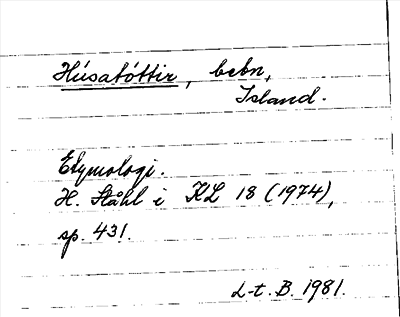 Húsatóttir, bebn,
Island.
Etymologi.
H. Ståhl i KL 18 (1974),
sp. 431.
L-t. B. 1981.